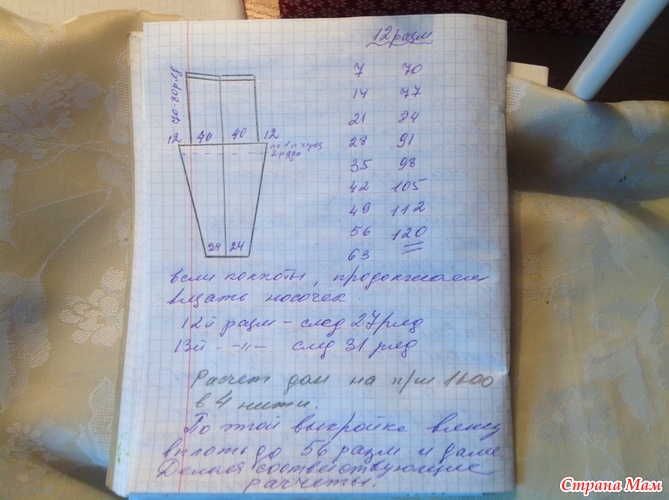 12 разм
7 70
14 77
21 84
28 91
35 98
42 105
49 112
56 120
63
70-80 ряд
12 40 40 12
по 1 п через
2 ряда
24 24
если колготы, продолжаем
вязать носочек.
12й разм - след 27 ряд
13й -"- след 31 ряд
Расчет дан на п/ш 1600
в 4 нити.
По этой выкройке вяжу
вплоть до 56 разм и далее
Делая соответствующие
расчеты.
Страна Мам